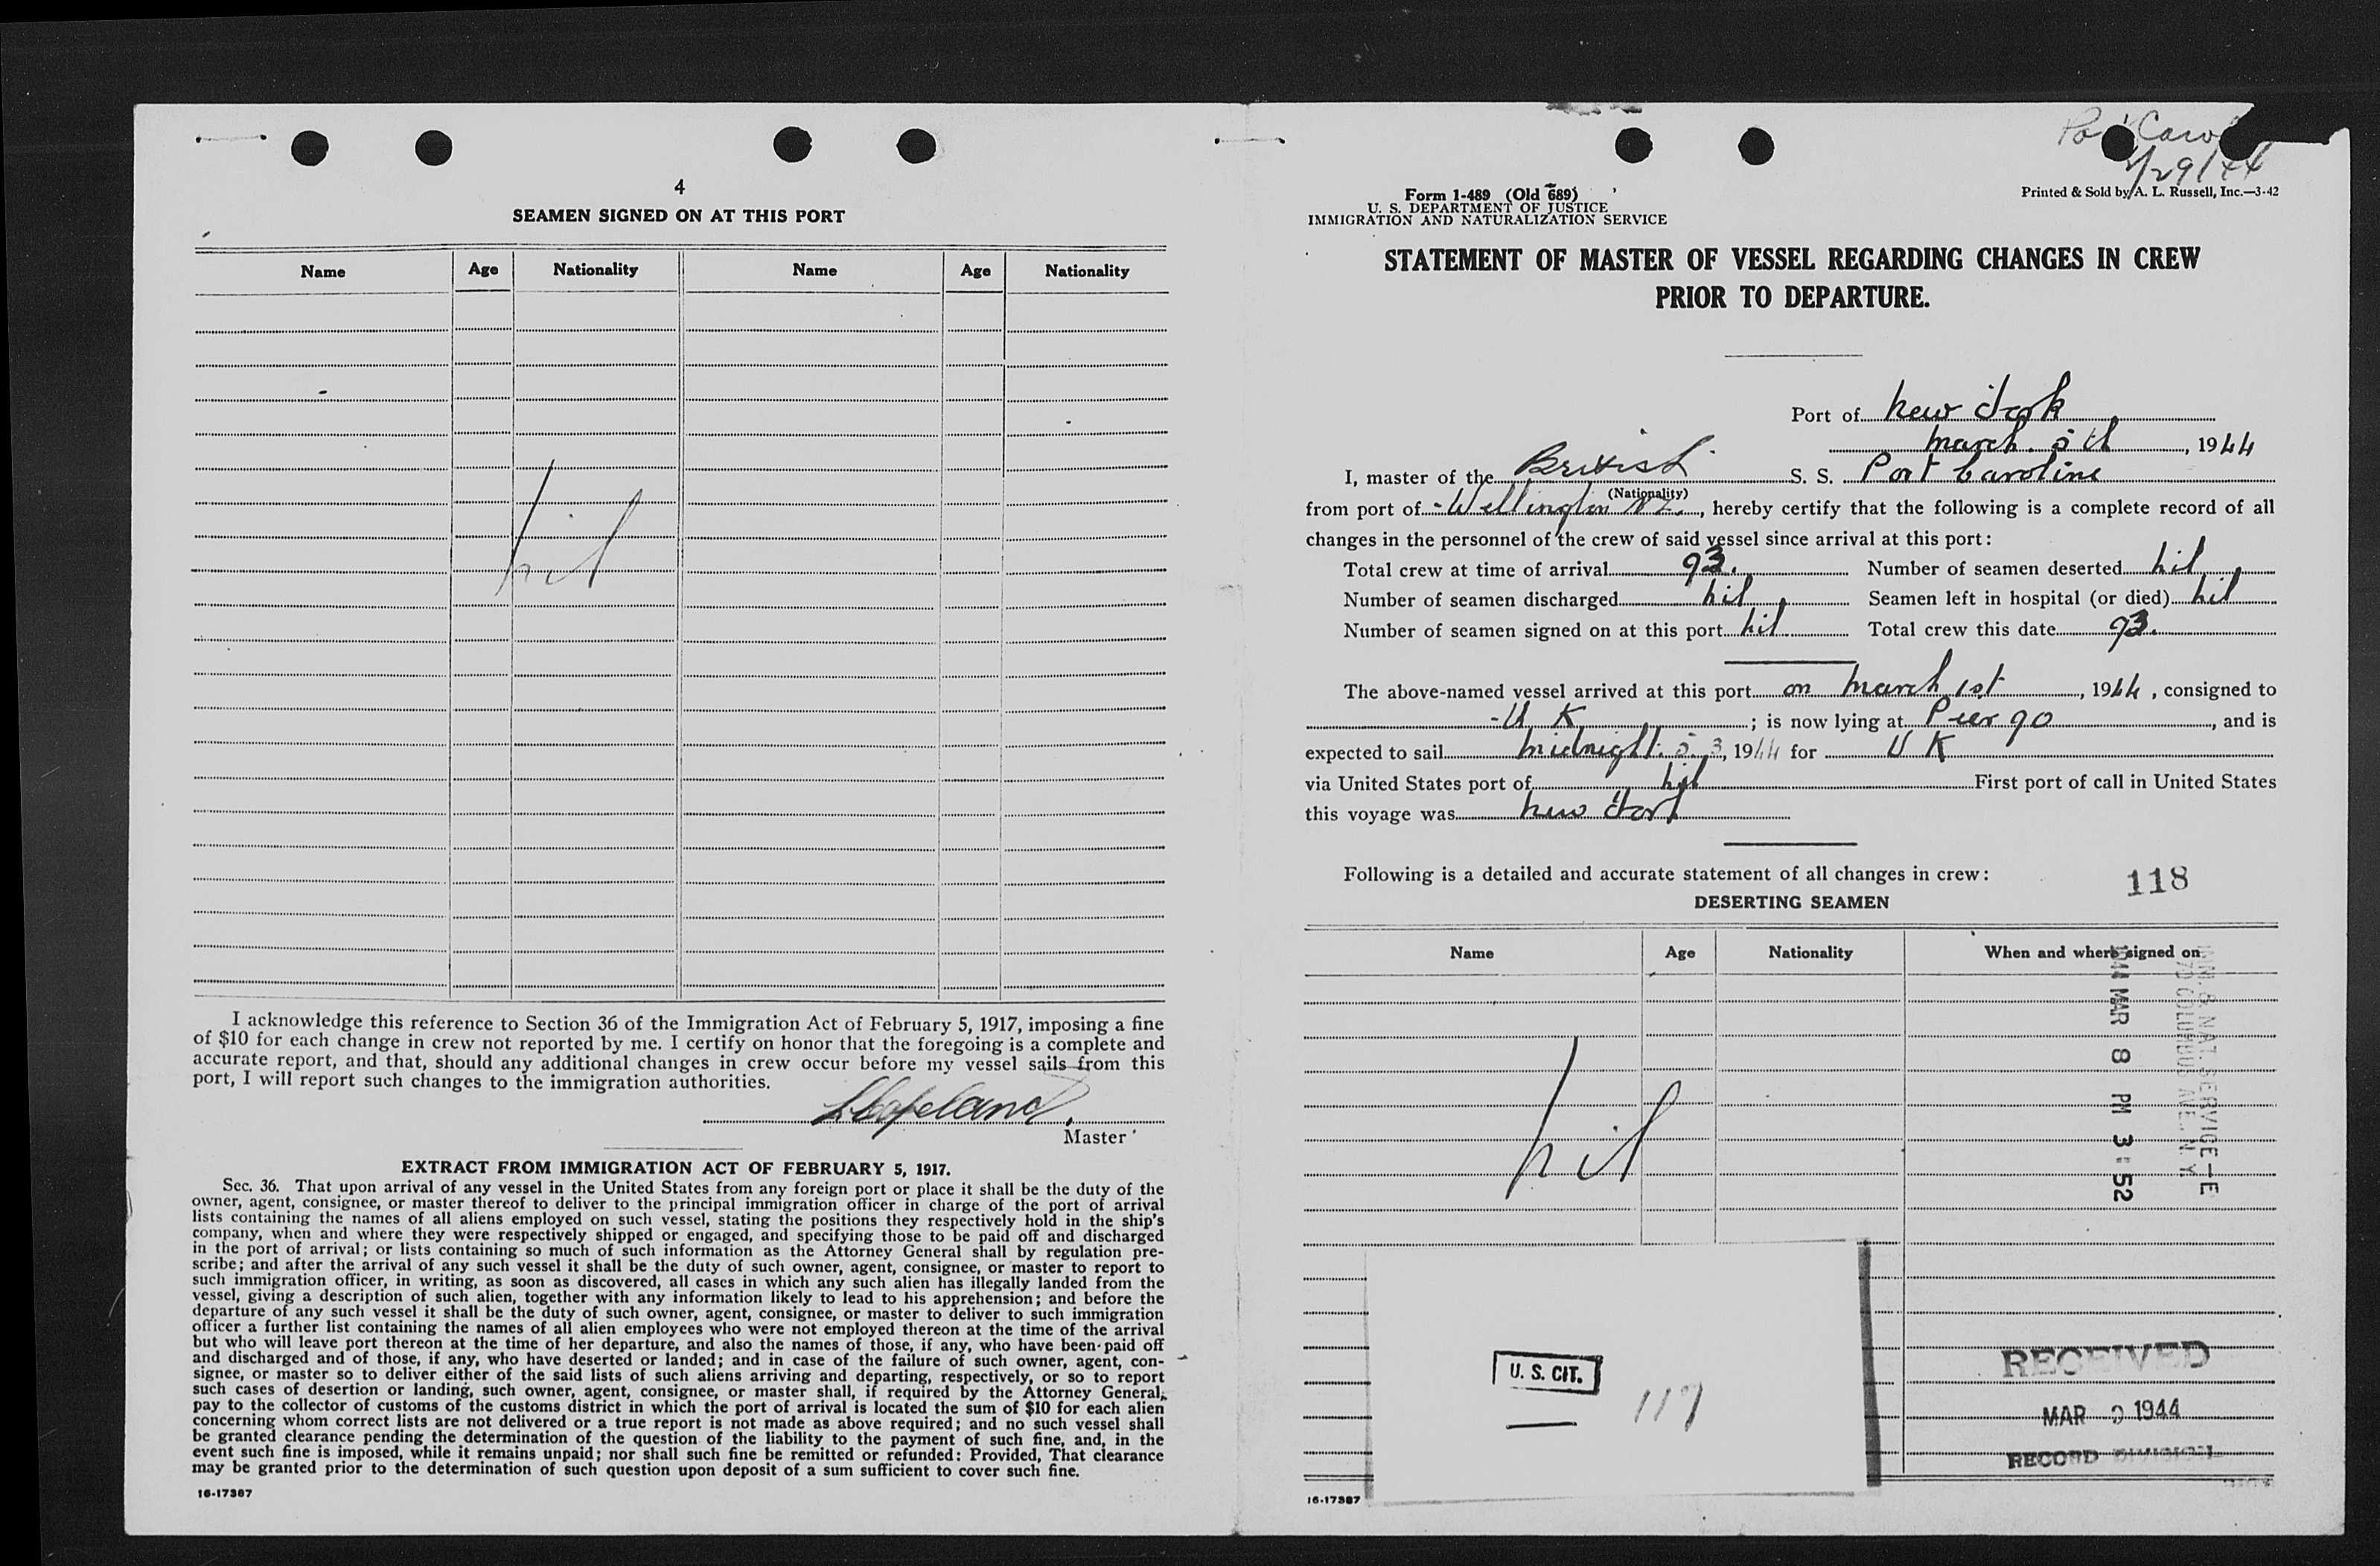 4
SEAMEN SIGNED ON AT THIS PORT
Name Age Nationality Name Age Nationality
nil
I acknowledge this reference to Section 36 of the Immigration Act of February 5, 1917, imposing a fine
of $10 for each change in crew not reported by me. I certify on honor that the foregoing is a complete and
accurate report, and that, should any additional changes in crew occur before my vessel sails from this
port, I will report such changes to the immigration authorities.
Copeland.
Master
EXTRACT FROM IMMIGRATION ACT OF FEBRUARY 5, 1917.
Sec. 36. That upon arrival of any vessel in the United States from any foreign port or place it shall be the duty of the
owner, agent, consignee, or master thereof to deliver to the principal immigration officer in charge of the port of arrival
lists containing the names of all aliens employed on such vessel, stating the positions they respectively hold in the ship's
company, when and where they were respectively shipped or engaged, and specifying those to be paid off and discharged
in the port of arrival; or lists containing so much of such information as the Attorney General shall by regulation pre-
scribe; and after the arrival of any such vessel it shall be the duty of such owner, agent, consignee, or master to report to
such immigration officer, in writing, as soon as discovered, all cases in which any such alien has illegally landed from the
vessel, giving a description of such alien, together with any information likely to lead to his apprehension; and before the
departure of any such vessel it shall be the duty of such owner, agent, consignee, or master to deliver to such immigration
officer a further list containing the names of all alien employees who were not employed thereon at the time of the arrival
but who will leave port thereon at the time of her departure, and also the names of those, if any, who have been paid off
and discharged and of those, if any, who have deserted or landed; and in case of the failure of such owner, agent, con-
signee, or master so to deliver either of the said lists of such aliens arriving and departing, respectively, or so to report
such cases of desertion or landing, such owner, agent, consignee, or master shall, if required by the Attorney General,
pay to the collector of customs of the customs district in which the port of arrival is located the sum of $10 for each alien
concerning whom correct lists are not delivered or a true report is not made as above required; and no such vessel shall
be granted clearance pending the determination of the question of the liability to the payment of such fine, and, in the
event such fine is imposed, while it remains unpaid; nor shall such fine be remitted or refunded: Provided, That clearance
may be granted prior to the determination of such question upon deposit of a sum sufficient to cover such fine.
16-17387
Caro
2/29/44
Form 1-489 (Old 689)
U. S. DEPARTMENT OF JUSTICE
IMMIGRATION AND NATURALIZATION SERVICE
Printed & Sold by A. L. Russell, Inc.—3-42
STATEMENT OF MASTER OF VESSEL REGARDING CHANGES IN CREW
PRIOR TO DEPARTURE.
Port of New York
March. 5th, 1944
I, master of the British S. S. Port Caroline
(Nationality)
from port of - Wellington NZ., hereby certify that the following is a complete record of all
changes in the personnel of the crew of said vessel since arrival at this port:
Total crew at time of arrival 93. Number of seamen deserted nil
Number of seamen discharged nil Seamen left in hospital (or died) nil
Number of seamen signed on at this port nil Total crew this date 93.
The above-named vessel arrived at this port on March 1st, 1944, consigned to
- U K; is now lying at Pier 90, and is
expected to sail midnight. 5. 3, 1944 for U K
via United States port of nil First port of call in United States
this voyage was New York
Following is a detailed and accurate statement of all changes in crew:
118
DESERTING SEAMEN
Name Age Nationality When and where signed on
nil
IMM. & NAT. SERVICE—E
70 COLUMBUS AVE. N Y
'44 MAR 8 PM 3:52
U. S. CIT.
117
RECEIVED
MAR 9 1944
RECORD DIVISION
16-17387